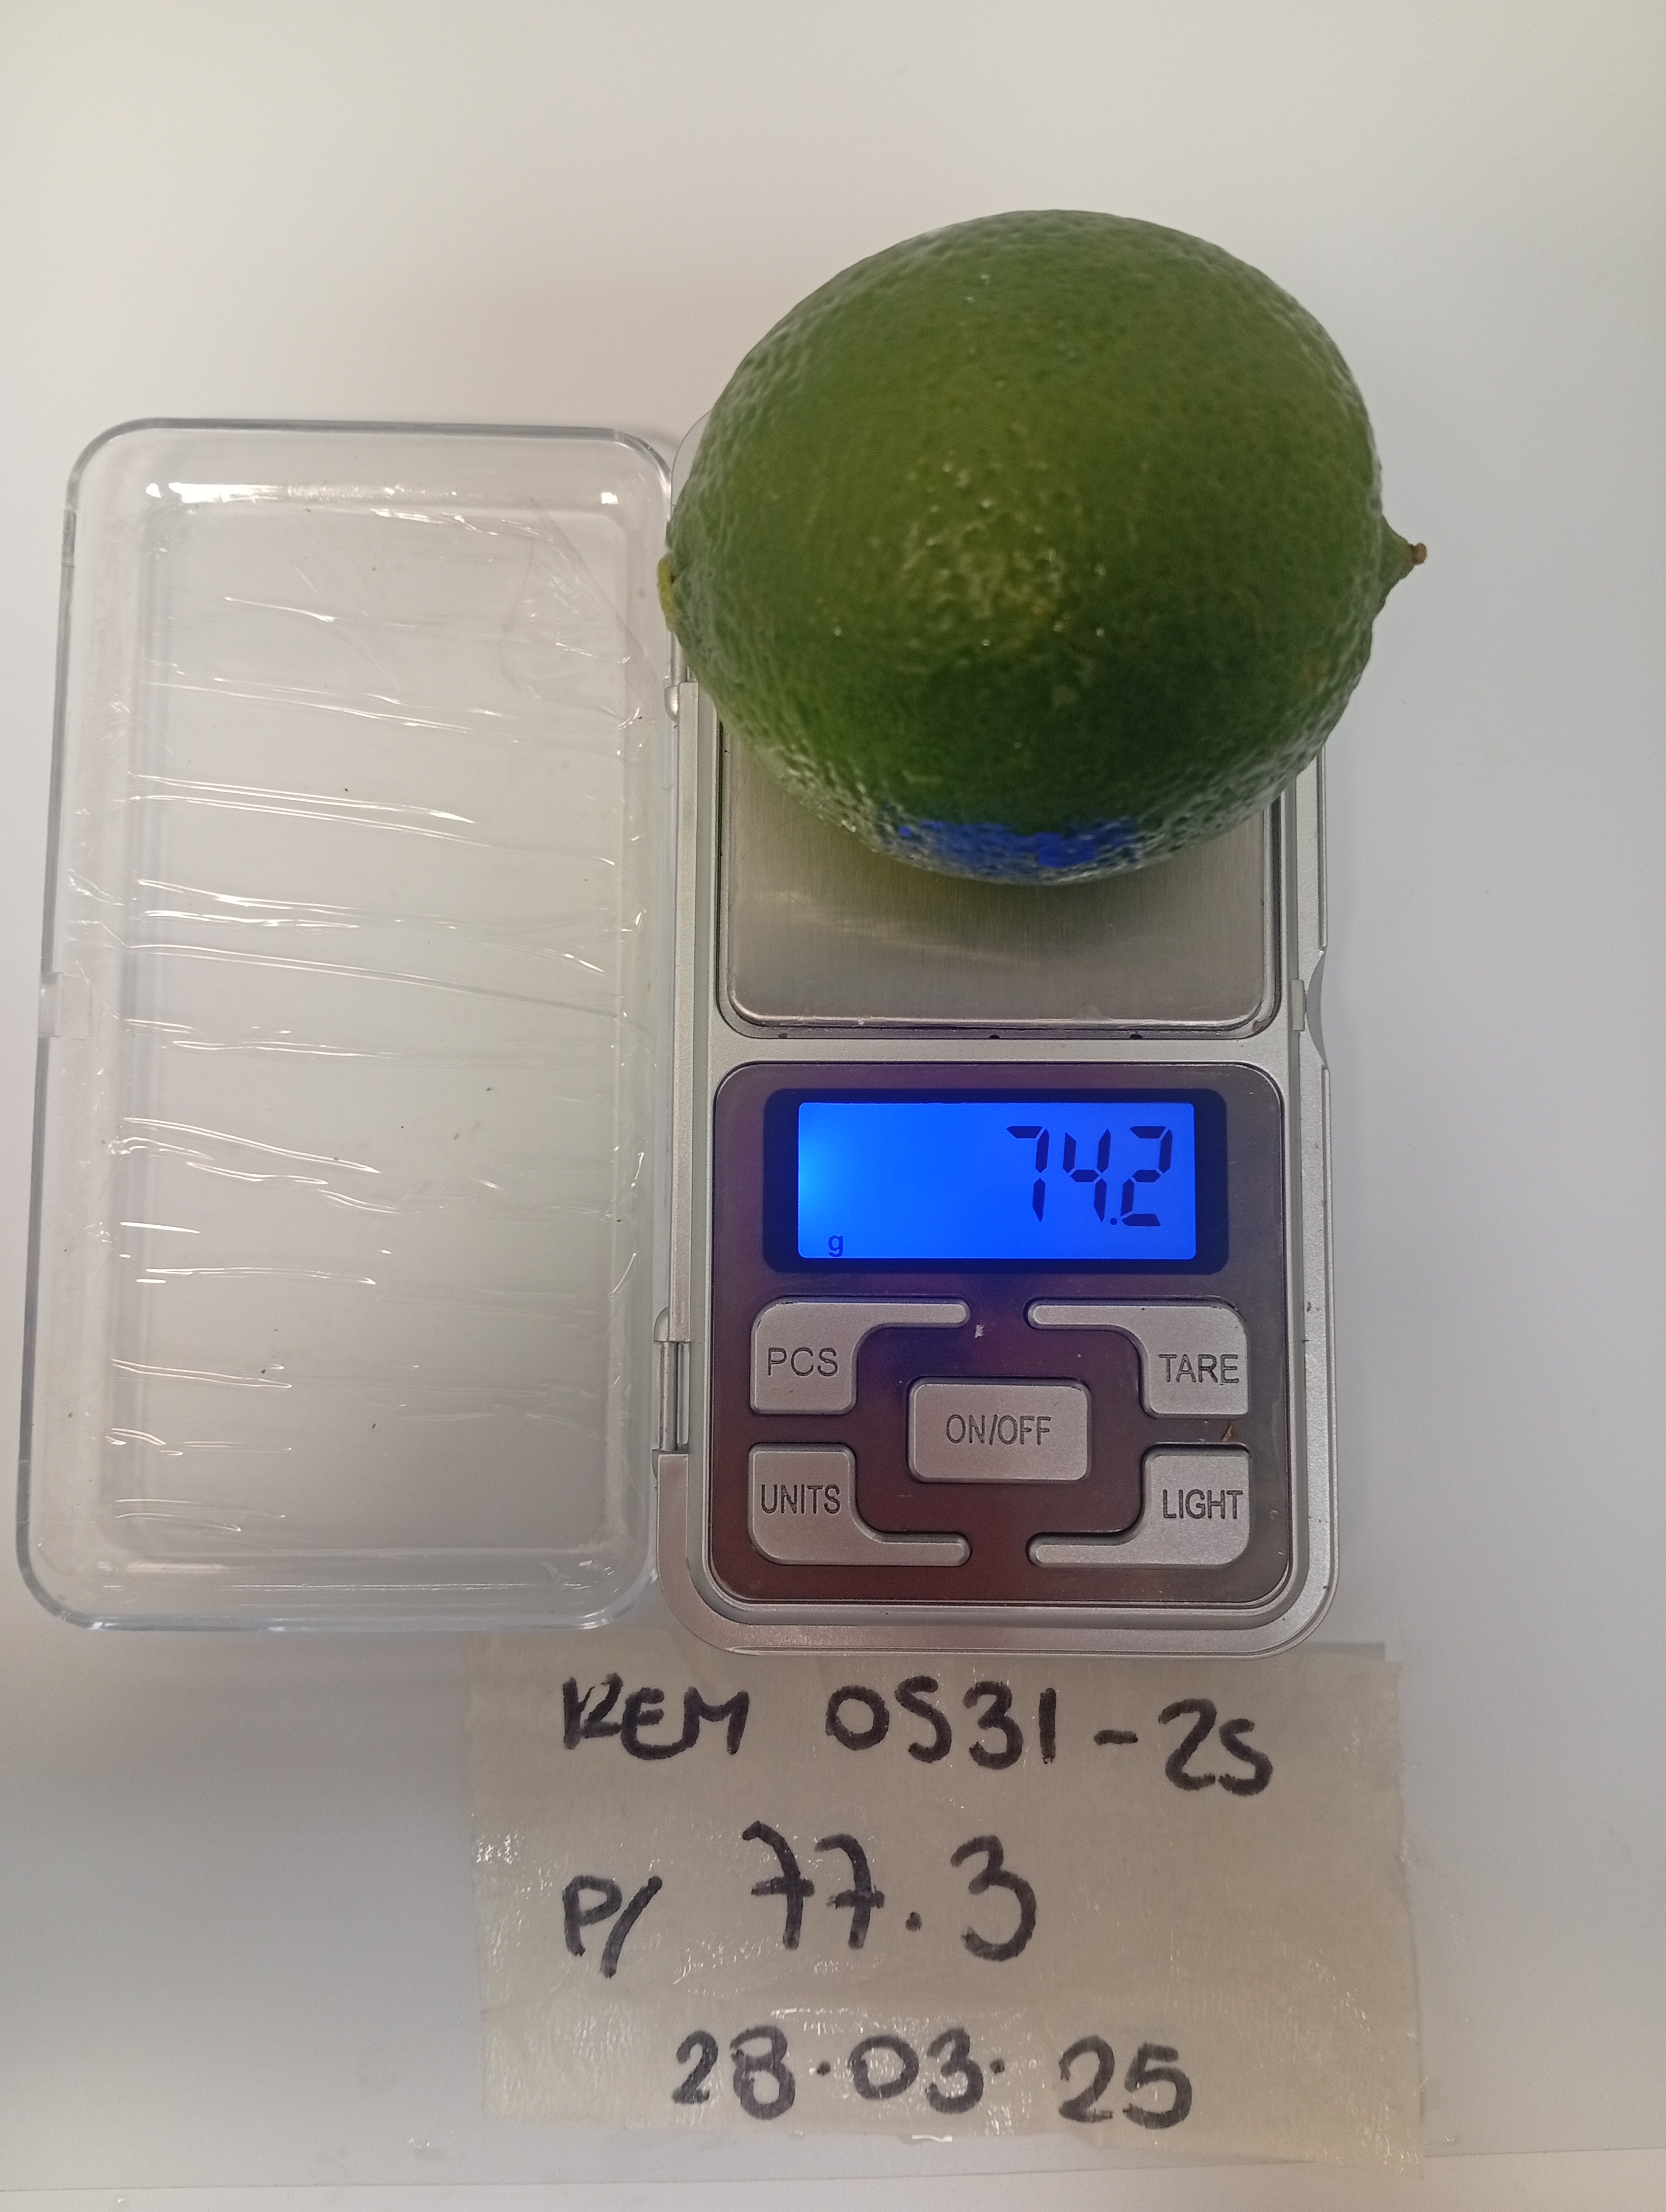 74.2
g
PCS
TARE
ON/OFF
UNITS
LIGHT
REM 0531-25
P/ 77.3
28.03.25